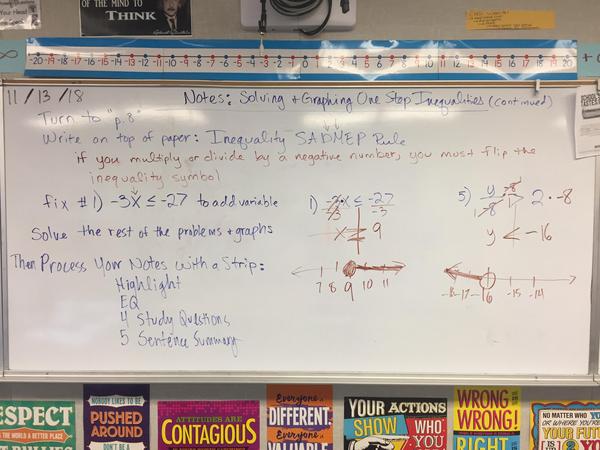 OF THE MIND TO
THINK
-20 -19 -18 -17 -16 -15 -14 -13 -12 -11 -10 -9 -8 -7 -6 -5 -4 -3 -2 -1 0 1 2 3 4 5 6 7 8 9 10 11 12 13 14 15 16 17 18 19 20
11/13/18
Notes: Solving + Graphing One Step Inequalities (continued)
Turn to "p.8"
Write on top of paper: Inequality SADMEP Rule
if you multiply or divide by a negative number, you must flip the
inequality symbol
fix #1) -3x ≤ -27 to add variable
Solve the rest of the problems + graphs
Then Process Your Notes with a Strip:
Highlight
EQ
4 Study Questions
5 Sentence Summary
1) -3x ≤ -27
-3 -3
x ≥ 9
7 8 9 10 11
5) y > 2 · -8
-8
y < -16
-18 -17 -16 -15 -14
RESPECT
THE WORLD A BETTER PLACE
NOBODY LIKES TO BE
PUSHED
AROUND
DON'T BE A
ATTITUDES ARE
CONTAGIOUS
Everyone is
DIFFERENT.
Everyone is
VALUABLE
YOUR ACTIONS
SHOW WHO
YOU
WRONG
WRONG!
RIGHT
NO MATTER WHO
OR WHERE
YOUR FUTURE